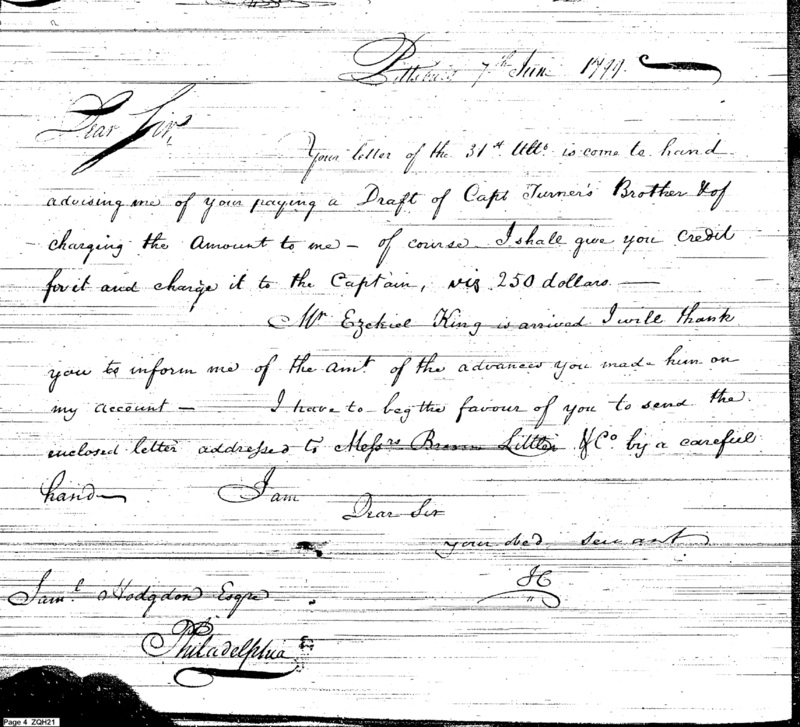 Pittsburg 7th June 1799.
Dear Sir,
Your letter of the 31st Ulto. is come to hand
advising me of your paying a Draft of Capt Turner's Brother & of
charging the Amount to me – of course I shall give you credit
for it and charge it to the Captain, viz 250 dollars. —
Mr Ezekiel King is arrived I will thank
you to inform me of the amt. of the advances you made him on
my account — I have to beg the favour of you to send the
enclosed letter addressed to Messrs Brown Little & Co. by a careful
hand — I am
Dear Sir
your obed servant
Saml. Hodgdon Esqre
Philadelphia
Page 4 ZQH21